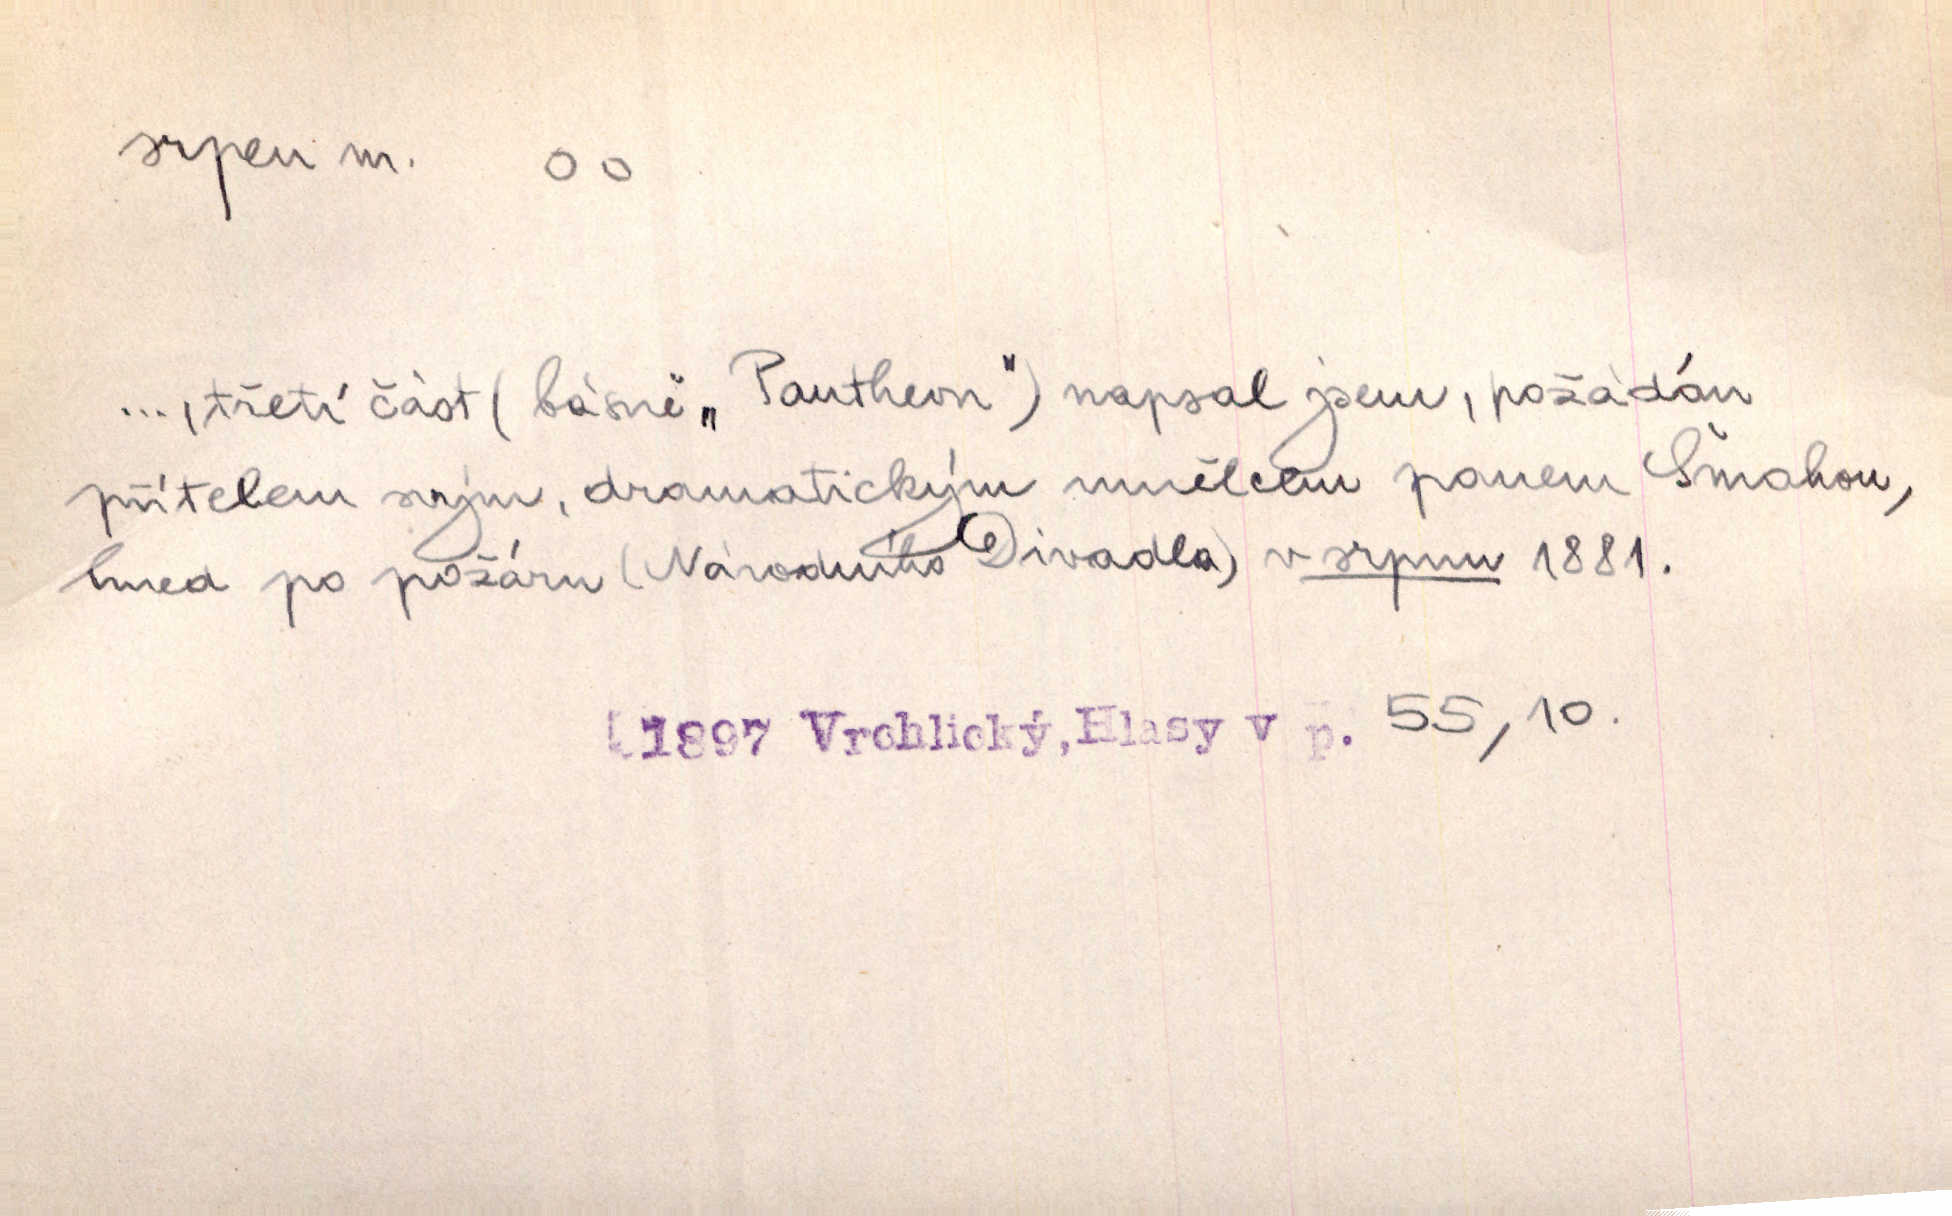 srpen m. oo
..., třetí část (básně „Pantheon") napsal jsem, požádán
přítelem svým, dramatickým umělcem panem Šmahou,
hned po požáru (Národního Divadla) v srpnu 1881.
1897 Vrchlický, Hlasy v p. 55, 10.